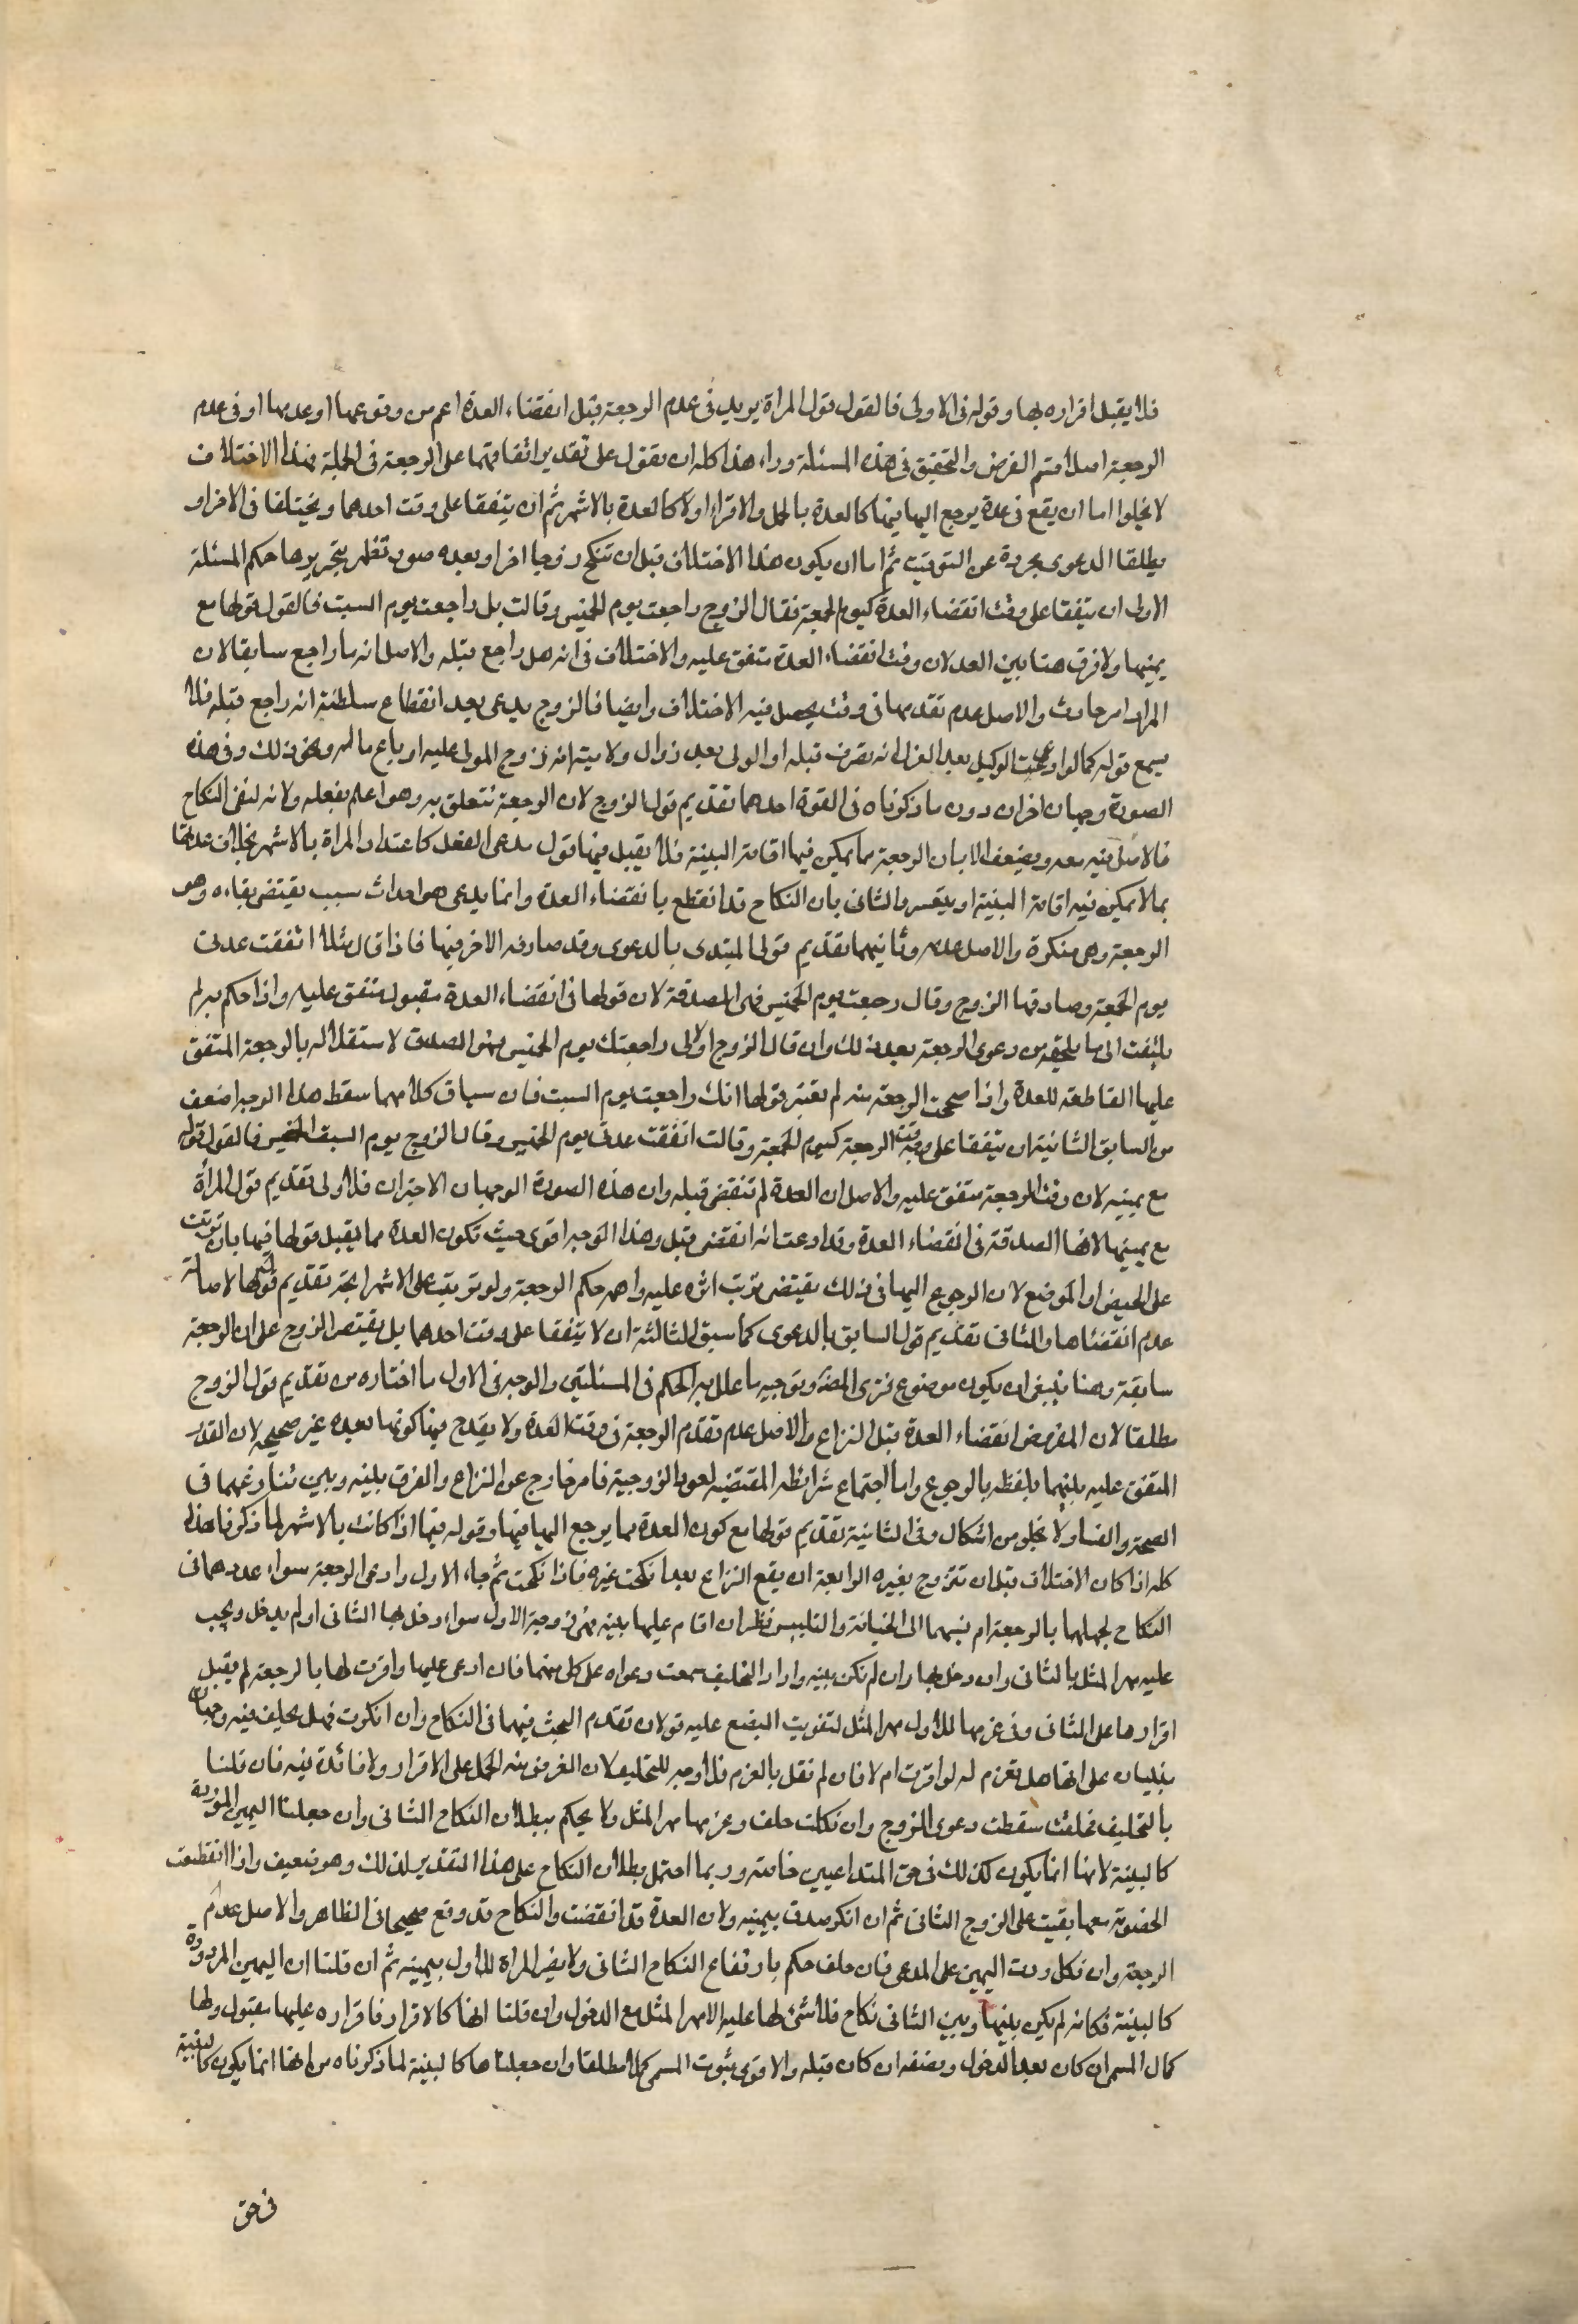 فلا يقبل اقراره بها وقوله في الاولى فالقول قول المراة يريد في عدم الرجعة قبل انقضاء العدة اعم من وقوعها او عدمها او في عدم
الرجعة اصلا فتم الغرض والتحقيق في هذه المسئلة وراء هذا كله ان يقول على تقدير اتفاقهما على الرجعة في الجملة فهذا الاختلاف
لا يخلوا اما ان يقع في عدة يرجع اليها فيها كالعدة بالحمل والاقراء اولا كالعدة بالاشهر ثم ان يتفقا على وقت احدهما ويختلفا في الاخر او
يطلقا الدعوى مجردة عن التوقيت ثم اما ان يكون هذا الاختلاف قبل ان تنكح زوجا اخر او بعده صور تظهر بتحريرها حكم المسئلة
الاولى ان يتفقا على وقت انقضاء العدة كيوم الجمعة فقال الزوج راجعت يوم الخميس وقالت بل راجعت يوم السبت فالقول قولها مع
يمينها ولا فرق هنا بين العدد لان وقت انقضاء العدة متفق عليه والاختلاف في انه هل راجع قبله والاصل انه ما راجع سابقا لان
المراد امر حادث والاصل عدم تقدمها في وقت يحصل فيه الاختلاف وايضا فالزوج يدعى بعد انقطاع سلطنته انه راجع قبله فلا
يسمع قوله كما لو ادعى الوكيل بعد العزل انه تصرف قبله او الولى بعد زوال ولايته انه زوج المولى عليه او باع ماله ونحو ذلك وفي هذه
الصورة وجهان اخران دون ما ذكرناه في القوة احدهما تقديم قول الزوج لان الرجعة تتعلق به وهو اعلم بفعله ولانه لنفى النكاح
فالاصل فيه معه ويضعف الا بان الرجعة مما يمكن فيها اقامة البينة فلا يقبل فيها قول مدعى الفعل كاعتداد المراة بالاشهر بخلاف عدتها
بما لا يمكن فيه اقامة البينة او يتعسر والثاني بان النكاح قد انقطع بانقضاء العدة وانما يدعى هو احداث سبب يقتضى بقاءه وهو
الرجعة وهى منكرة والاصل عدمه وثانيهما تقديم قول المبتدى بالدعوى وقد صادفه الاخر فيها فاذا قال مثلا انقضت عدتى
يوم الجمعة وصادقها الزوج وقال رجعت يوم الخميس فهى المصدقة لان قولها في انقضاء العدة مقبول متفق عليه واذا حكم به لم
يلتفت الى ما يلحقه من دعوى الرجعة بعد ذلك وان قال الزوج اولا لى راجعتك يوم الخميس فهو المصدق لاستقلاله بالرجعة المتفق
عليها القاطعة للعدة واذا صحت الرجعة منه لم تعتبر قولها انك راجعت يوم السبت فان سباق كلامهما سقط هذا الوجه اضعف
من السابق الثانية ان يتفقا على وقت الرجعة كيوم الجمعة وقالت انقضت عدتى يوم الخميس وقال الزوج يوم السبت فالقول قوله
مع يمينه لان وقت الرجعة متفق عليه والاصل ان العدة لم تنقض قبله وان هذه الصورة الوجهان الاخيران فلا ولى تقديم قول المراة
مع يمينها لانها الصدقة في انقضاء العدة وقد ادعت انه انقضى قبل وهذا الوجه اقوى حيث تكون العدة مما يقبل قولها فيها بان توقت
على الحيض او الوضع لان الرجوع اليها في ذلك يقتضى ترتب اثره عليه واهمه حكم الرجعة ولو ترتبت على الاشهر اتجه تقديم قوله لاصالة
عدم انقضائها والثاني تقديم قول السابق بالدعوى كما سبق الثالثة ان لا يتفقا على وقت احدهما بل يقتصر الزوج على ان الرجعة
سابقة وهنا ينبغى ان يكون موضوع فرض المصنف وتوجيه ما علل به الحكم في المسئلتين والوجه في الاول ما اختاره من تقديم قول الزوج
مطلقا لان المفروض انقضاء العدة قبل النزاع والاصل عدم تقدم الرجعة في وقت العدة ولا يقدح فيها كونها بعده غير صحيحه لان القدر
المتفق عليه بينهما تلفظه بالرجوع واما اجتماع شرائطه المقتضيه لعود الزوجية فامر خارج عن النزاع والفرق بينه وبين تنازعهما في
الصحة والفساد ولا يخلو من اشكال وفي الثانية تقديم قولها مع كون العدة مما يرجع اليها فيها وقوله فيها اذا كانت بالاشهر لما ذكرنا هذا
كله اذا كان الاختلاف قبل ان تتزوج بغيره الرابعة ان يقع النزاع بعد ان نكحت غيره فاذا نكحت ثم جاء الاول وادعى الرجعة سواء عددهما في
النكاح لجهلهما بالرجعة ام نسبهما الى الخيانة والتلبيس نظر ان اقام عليها بينة فهى زوجة الاول سواء دخل بها الثاني او لم يدخل ويجب
عليه مهر المثل بالثاني وان دخل بها وان لم تكن بينه واراد التحليف سمعت دعواه على كل منهما فان ادعى عليها واقرت لها بالرجعة لم يقبل
اقرارها على الثاني وفي غرمها للاول مهر المثل لتفويت البضع عليه قولان تقدم البحث فيهما في النكاح وان انكرت فهل يحلف فيه وجهان
يبنيان على انها هل تغرم له لو اقرت ام لا فان لم نقل بالغرم فلا وجه للتحليف لان الغرض منه الحمل على الاقرار ولا فائدة فيه فان قلنا
بالتحليف فحلفت سقطت دعوى الزوج وان نكلت حلف وغرمها مهر المثل ولا يحكم ببطلان النكاح الثاني وان جعلنا اليمين المردودة
كالبينة لانها انما يكون كذلك في حق المتداعيين خاصة وربما احتمل بطلان النكاح على هذا التقدير لذلك وهو ضعيف واذا انقطعت
الخصومة معها بقيت على الزوج الثاني ثم ان انكر صدق بيمينه ولان العدة قد انقضت والنكاح قد وقع صحيحا في الظاهر والاصل عدم
الرجعة وان نكل ردت اليمين على المدعى فان حلف حكم بارتفاع النكاح الثاني ولا يضر المراة للاول بيمينه ثم ان قلنا ان اليمين المردودة
كالبينة فكانه لم يكن بينها وبين الثاني نكاح فلا شئ لها عليه الا مهر المثل مع الدخول وان قلنا انها كالاقرار فاقراره عليها مقبول ولها
كمال المسمى ان كان بعد الدخول ونصفه ان كان قبله والاقوى ثبوت المسمى كملا مطلقا وان جعلناها كالبينة لما ذكرناه من انها انما يكون كالبينة
في حق